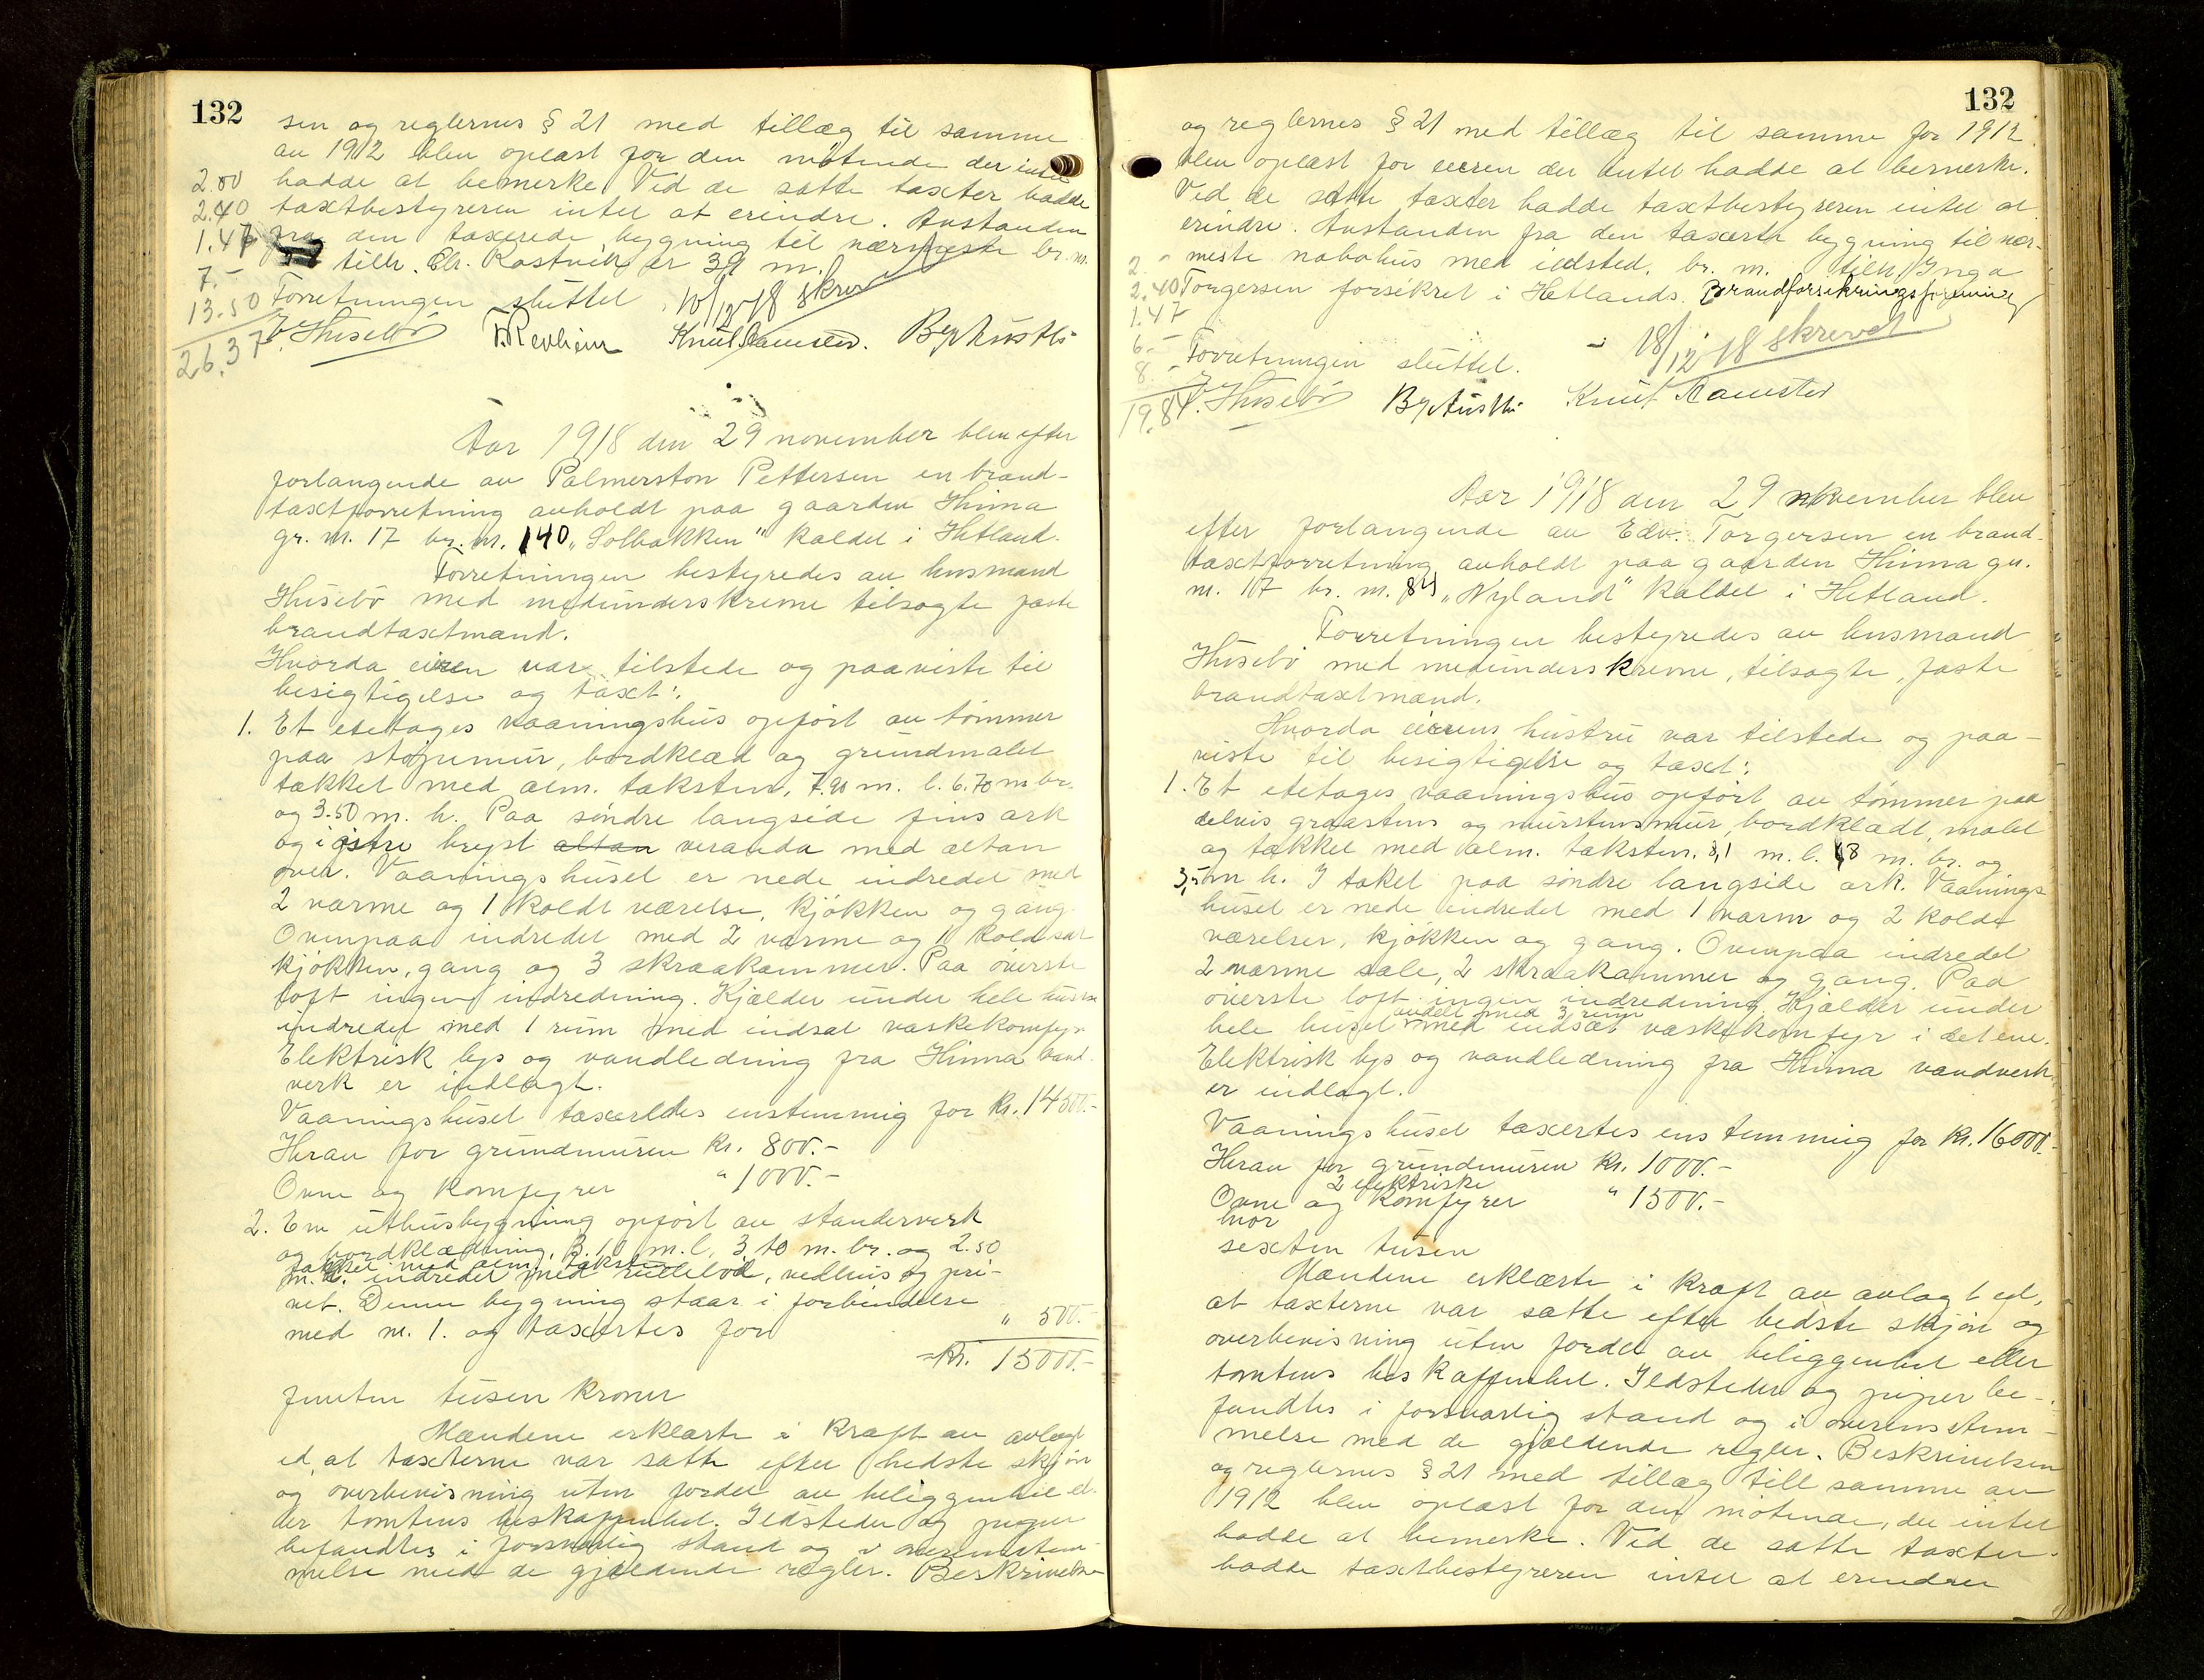 132
sen og reglernes § 21 med tillæg til samme
av 1912 blev oplæst for den møtende der intet
2.00 hadde at bemerke. Ved de satte taxter hadde
2.40 taxtbestyreren intet at erindre. Avstanden
1.47 fra den taxerede bygning til nærmeste br. nr.
7.- tilh. Chr. Rostvik er 39 m.
13.50 Forretningen sluttet. 10/12-18 skrev
26.37 E. Husebø T. Revheim Knut Ramstad.
Aar 1918 den 29 november blev efter
forlangende av Palmerston Pettersen en brand-
taxtforretning avholdt paa gaarden Hinna
gr. nr. 17 br. nr. 140 "Solbakken" kaldet i Hetland.
Forretningen bestyredes av lensmand
Husebø med medunderskrevne tilsagte faste
brandtaxtmænd.
Hvorda eieren var tilstede og paaviste til
besigtigelse og taxt:
1. Et etetages vaaningshus opført av tømmer
paa støpemur, bordklæd og grundmalet
tækket med alm. taksten, 7.90 m. l. 6.70 m br.
og 3.50 m. h. Paa søndre langside fins ark
og i østre brejst altan veranda med altan
over. Vaaningshuset er nede indredet med
2 varme og 1 koldt værelse, kjøkken og gang
Ovenpaa indredet med 2 varme og 1 kold sal
kjøkken, gang og 3 skraakammer. Paa øverste
loft ingen indredning. Kjælder under hele huset
indredet med 1 rum med indsat vaskekomfyr
Elektrisk lys og vandledning fra Hinna vand-
verk er indlagt.
Vaaningshuset taxertes enstemmig for Kr. 14500.-
Herav for grundmuren Kr. 800.-
Ovne og komfyrer " 1000.-
2. En uthusbygning opført av standerverk
og bordklædning, 3.10 m. l. 3.10 m. br. og 2.50
takket med alm. taksten
m. h. indredet med rullebod, vedhus og pri-
vet. Denne bygning staar i forbindelse
med nr. 1. og taxertes for " 500.-
Kr. 15000.-
femten tusen kroner
Mændene erklærte i kraft av avlagt
ed, at taxterne var satte efter bedste skjøn
og overbevisning uten fordel av beliggenhet el-
ler tomtens beskaffenhet. Ildsteder og piper
befandtes i forsvarlig stand og i overenstem-
melse med de gjældende regler. Beskrivelsen
132
og reglernes § 21 med tillæg til samme for 1912
blev oplæst for eieren der intet hadde at bemerke.
Ved de satte taxter hadde taxtbestyreren intet at
erindre. Avstanden fra den taxerte bygning til nær-
2.- meste nabohus med ildsted, br. nr. tilh. Inga
2.40 Torgersen forsikret i Hetlands Brandforsikringsforening
1.47
6.- - 18/12-18 skrevet
8.- Forretningen sluttet.
19.87 E. Husebø Knut Ramstad
Aar 1918 den 29 november blev
efter forlangende av Edv. Torgersen en brand-
taxtforretning avholdt paa gaarden Hinna gr.
nr. 17 br. nr. 84 "Nyland" kaldet i Hetland.
Forretningen bestyredes av lensmand
Husebø med medunderskrevne, tilsagte, faste
brandtaxtmænd.
Hvorda eierens hustru var tilstede og paa-
viste til besigtigelse og taxt:
1. Et etetages vaaningshus opført av tømmer paa
delvis graastens og murstensmur, bordklædt, malet
og tækket med alm. taksten. 8,1 m. l. 6,8 m. br. og
3,5 m h. I taket paa søndre langside ark. Vaanings-
huset er nede indredet med 1 varm og 2 kolde
værelser, kjøkken og gang. Ovenpaa indredet
2 varme sale, 2 skraakammer og gang. Paa
øverste loft ingen indredning. Kjælder under
avdelt med 3 rum
hele huset med indsat vaskekomfyr i det ene.
Elektrisk lys og vandledning fra Hinna vandverk
er indlagt.
Vaaningshuset taxertes enstemmig for Kr. 16000.-
Herav for grundmuren Kr. 1000.-
2 elektriske
Ovne og komfyrer " 1500.-
hvor
sexten tusen
Mændene erklærte i kraft av avlagt ed,
at taxterne var satte efter bedste skjøn og
overbevisning uten fordel av beliggenhet eller
tomtens beskaffenhet. Ildsteder og piper be-
fandtes i forsvarlig stand og i overensstem-
melse med de gjældende regler. Beskrivelsen
og reglernes § 21 med tillæg till samme av
1912 blev oplæst for den møtende, der intet
hadde at bemerke. Ved de satte taxter
hadde taxtbestyreren intet at erindre